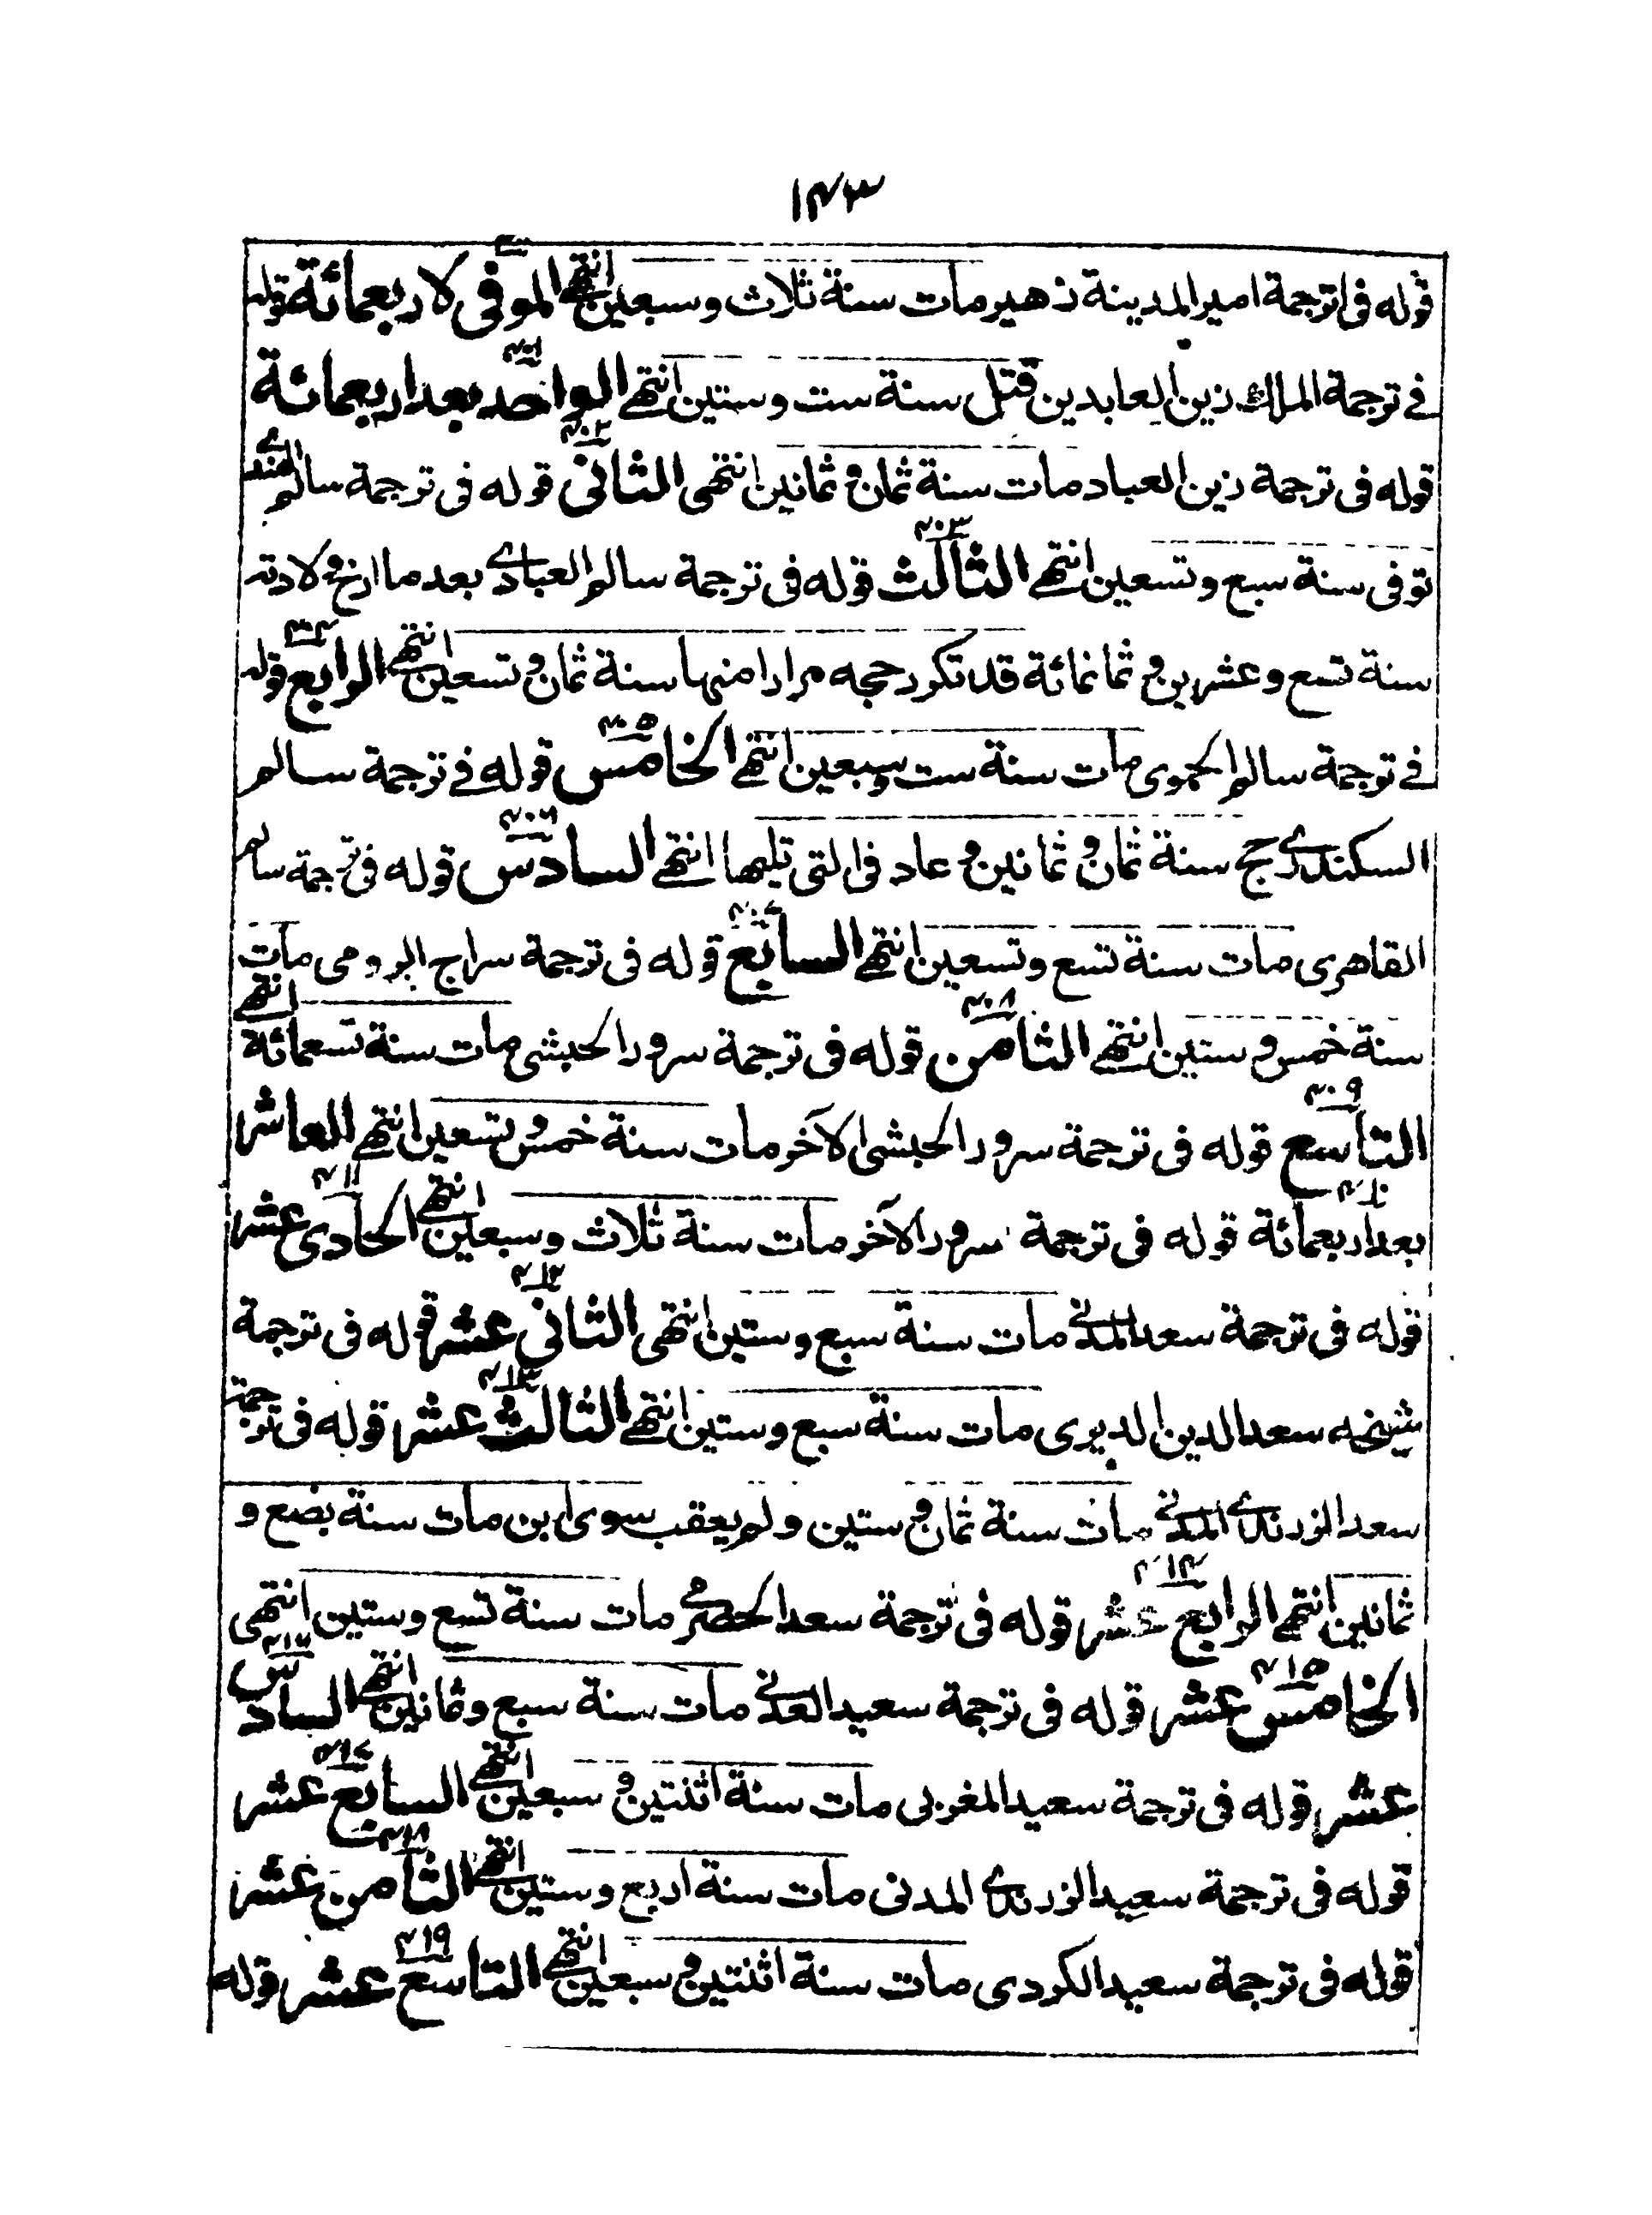 ١٤٣
قوله في ترجمة امير المدينة زهير مات سنة ثلاث وسبعين انتهى الموفي لاربعمائة قوله
٤٠٠
في ترجمة الملك زين العابدين قتل سنة ست وستين انتهى الواحد بعد اربعمائة
٤٠١
قوله في ترجمة زين العباد مات سنة ثمان وثمانين انتهى الثاني قوله في ترجمة سالم الهندي
٤٠٢
توفي سنة سبع وتسعين انتهى الثالث قوله في ترجمة سالم العبادي بعد ما ارخ ولادته
٤٠٣
سنة تسع وعشرين وثمانمائة قد تكرر حجه مرارا منها سنة ثمان وتسعين انتهى الرابع قوله
٤٠٤
في ترجمة سالم الحموي مات سنة ست وسبعين انتهى الخامس قوله في ترجمة سالم
٤٠٥
السكندري حج سنة ثمان وثمانين وعاد في التي تليها انتهى السادس قوله في ترجمة سالم
٤٠٦
القاهري مات سنة تسع وتسعين انتهى السابع قوله في ترجمة سراج الرومي مات
٤٠٧
سنة خمس وستين انتهى الثامن قوله في ترجمة سرور الحبشي مات سنة تسعمائة انتهى
٤٠٨
التاسع قوله في ترجمة سرور الحبشي الآخر مات سنة خمس وتسعين انتهى العاشر
٤٠٩
بعد اربعمائة قوله في ترجمة سرور الآخر مات سنة ثلاث وسبعين انتهى الحادي عشر
٤١٠ ٤١١
قوله في ترجمة سعد المدني مات سنة سبع وستين انتهى الثاني عشر قوله في ترجمة
٤١٢
شيخه سعد الدين الديري مات سنة سبع وستين انتهى الثالث عشر قوله في ترجمة
٤١٣
سعد الزرندي المدني مات سنة ثمان وستين ولم يعقب سوى ابن مات سنة بضع و
ثمانين انتهى الرابع عشر قوله في ترجمة سعد الحضرمي مات سنة تسع وستين انتهى
٤١٤
الخامس عشر قوله في ترجمة سعيد العدني مات سنة سبع وثمانين انتهى السادس
٤١٥ ٤١٦
عشر قوله في ترجمة سعيد المغربي مات سنة اثنتين وسبعين انتهى السابع عشر
٤١٧
قوله في ترجمة سعيد الزرندي المدني مات سنة اربع وستين انتهى الثامن عشر
٤١٨
قوله في ترجمة سعيد الكردي مات سنة اثنتين وسبعين انتهى التاسع عشر قوله
٤١٩